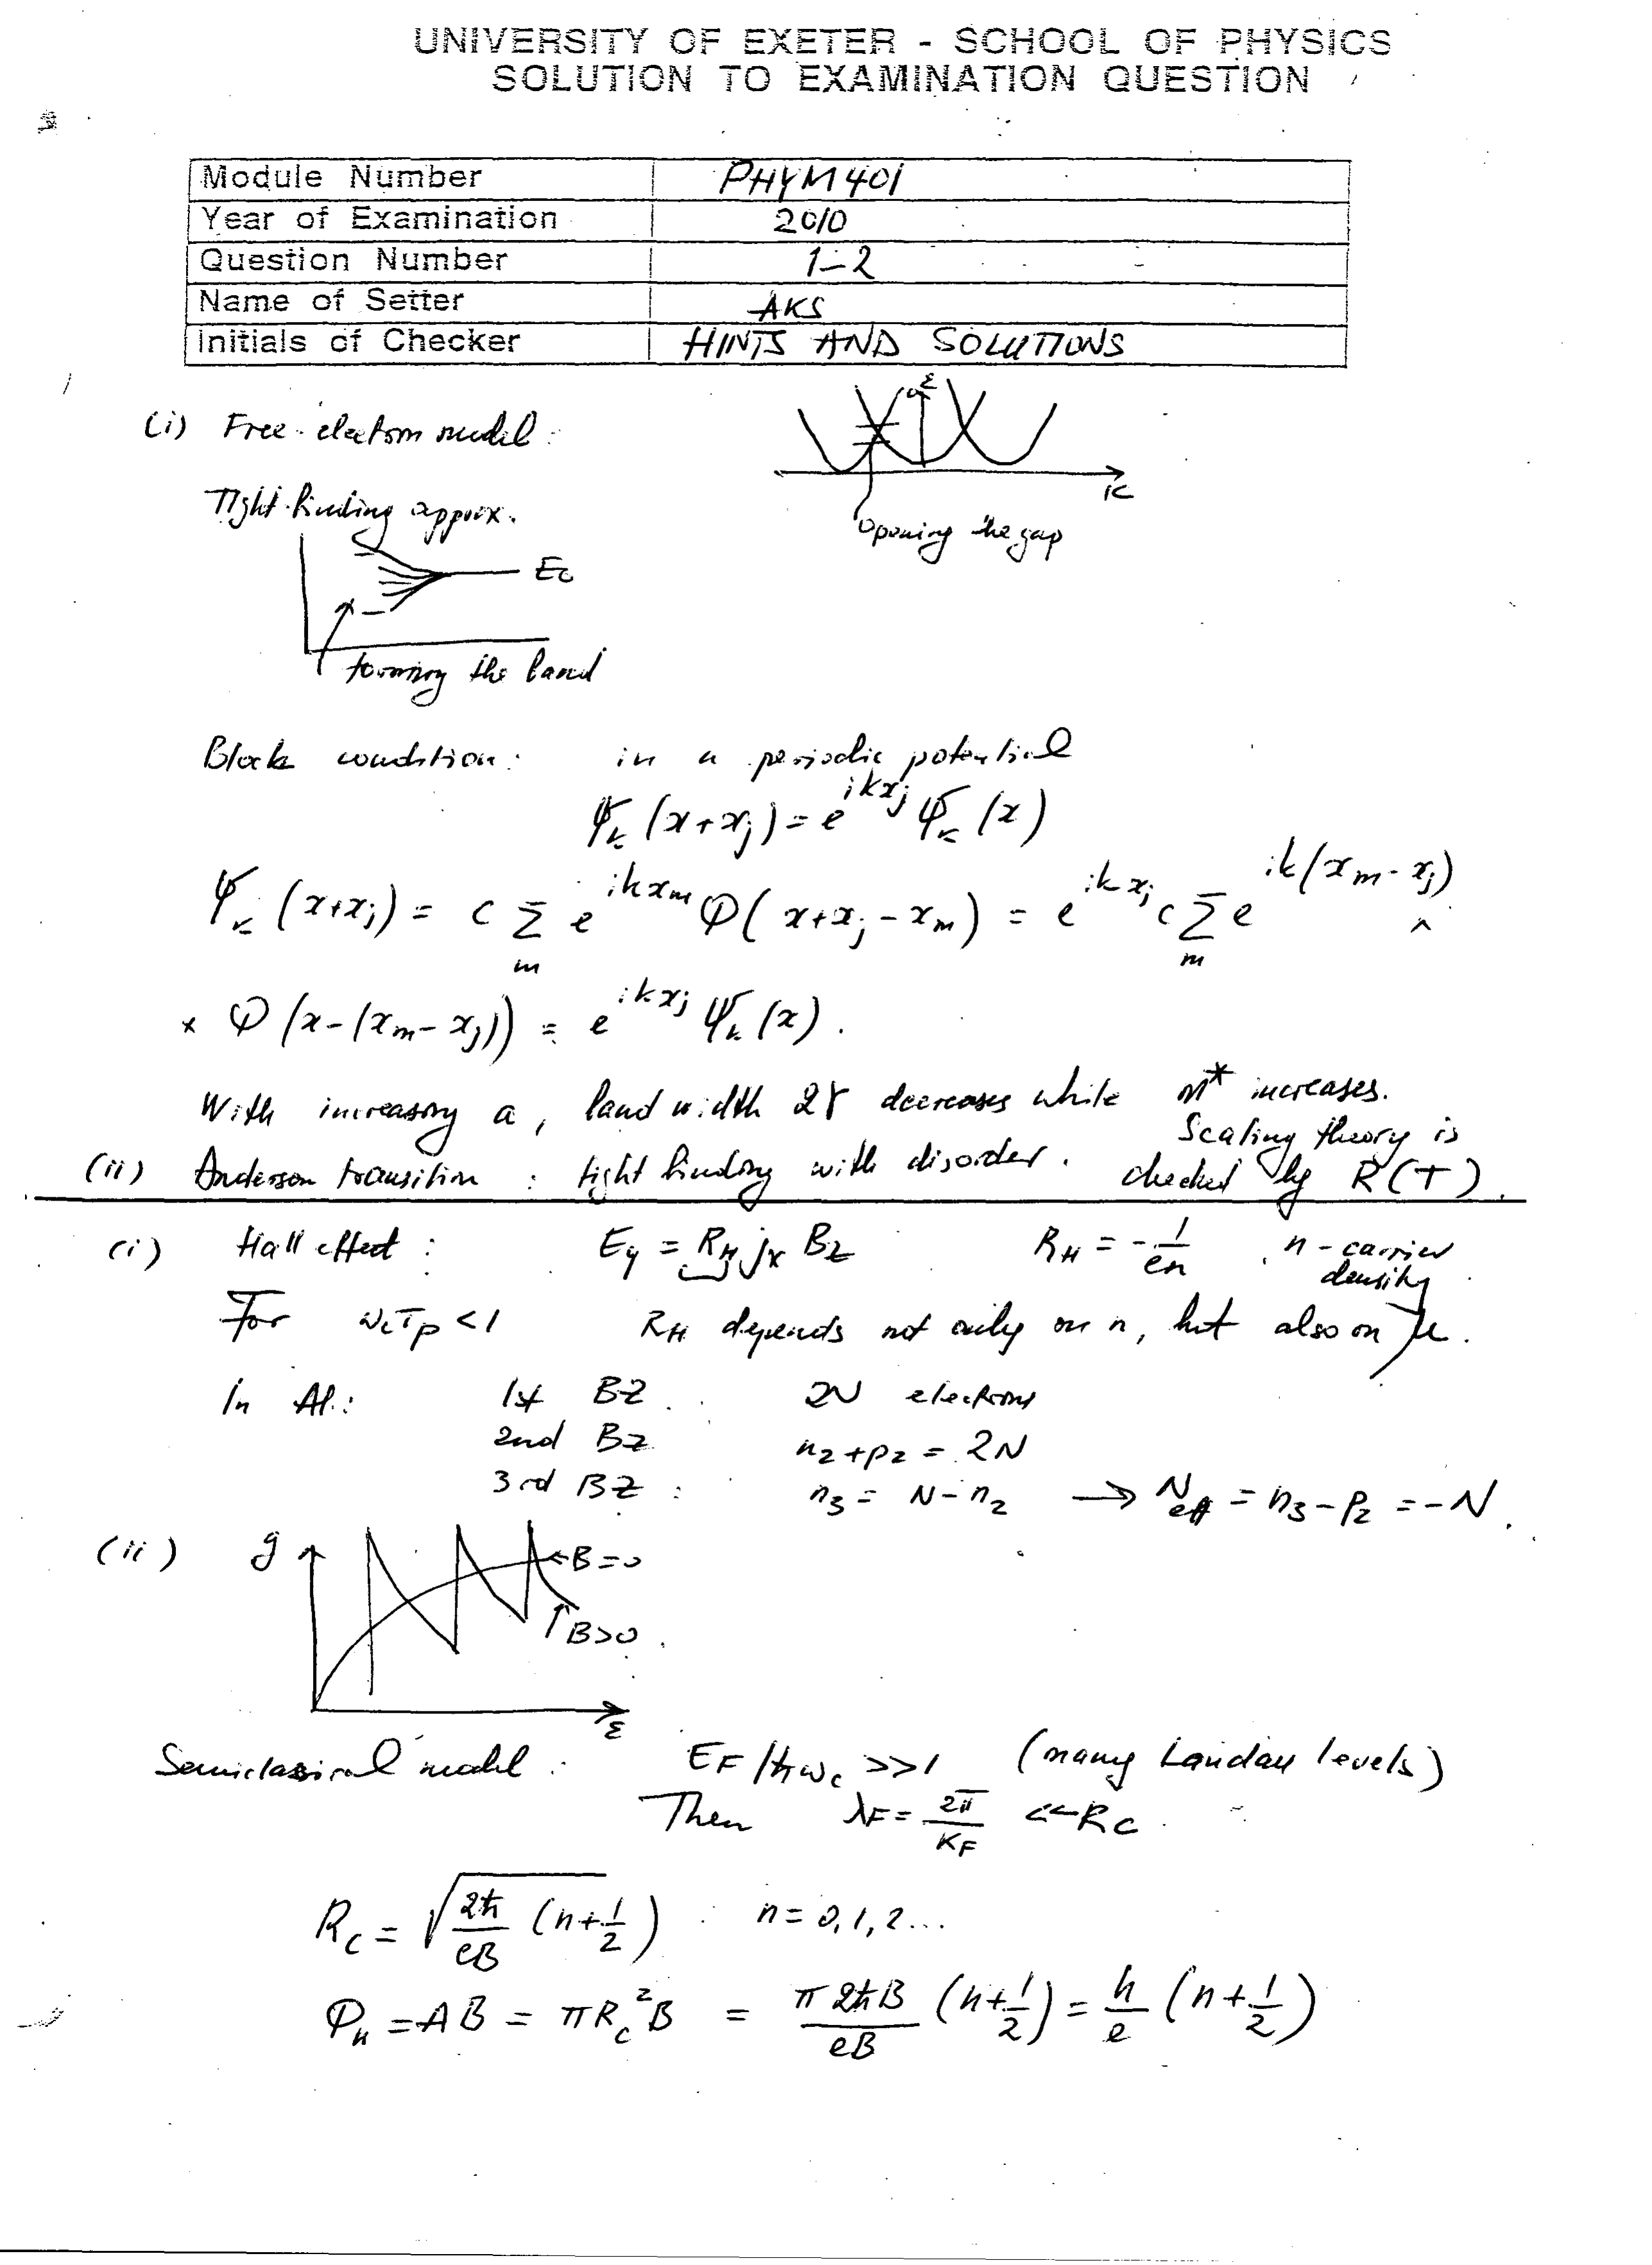 UNIVERSITY OF EXETER - SCHOOL OF PHYSICS
SOLUTION TO EXAMINATION QUESTION
Module Number PHYM401
Year of Examination 2010
Question Number 1-2
Name of Setter AKS
Initials of Checker HINTS AND SOLUTIONS
(i) Free-electron model:
ε
k
Tight-binding approx.
Opening the gap
E₀
forming the band
Bloch condition: in a periodic potential
Ψₖ(x+xⱼ) = e^{ikxⱼ} Ψₖ(x)
Ψₖ(x+xⱼ) = c Σₘ e^{ikxₘ} Φ(x+xⱼ-xₘ) = e^{ikxⱼ} c Σₘ e^{ik(xₘ-xⱼ)}
× Φ(x-(xₘ-xⱼ)) = e^{ikxⱼ} Ψₖ(x).
With increasing a, band width 2γ decreases while m* increases.
(ii) Anderson transition: tight binding with disorder. Scaling theory is
checked by R(T).
(i) Hall effect: E_y = R_H j_x B_z R_H = -1/(en), n - carrier
density
For ω_c τ_p < 1 R_H depends not only on n, but also on μ.
In Al: 1st BZ 2N electrons
2nd BZ n₂+p₂ = 2N
3rd BZ: n₃ = N-n₂ → N_eff = n₃-p₂ = -N.
(ii) g
←B=0
↑B>0
ε
Semiclassical model: E_F/ħω_c >>1 (many Landau levels)
Then λ_F = 2π/K_F << R_C
R_c = √(2ħ/eB (n+1/2)) n = 0,1,2...
Φₙ = AB = πR_c²B = π2ħB/eB (n+1/2) = h/e (n+1/2)